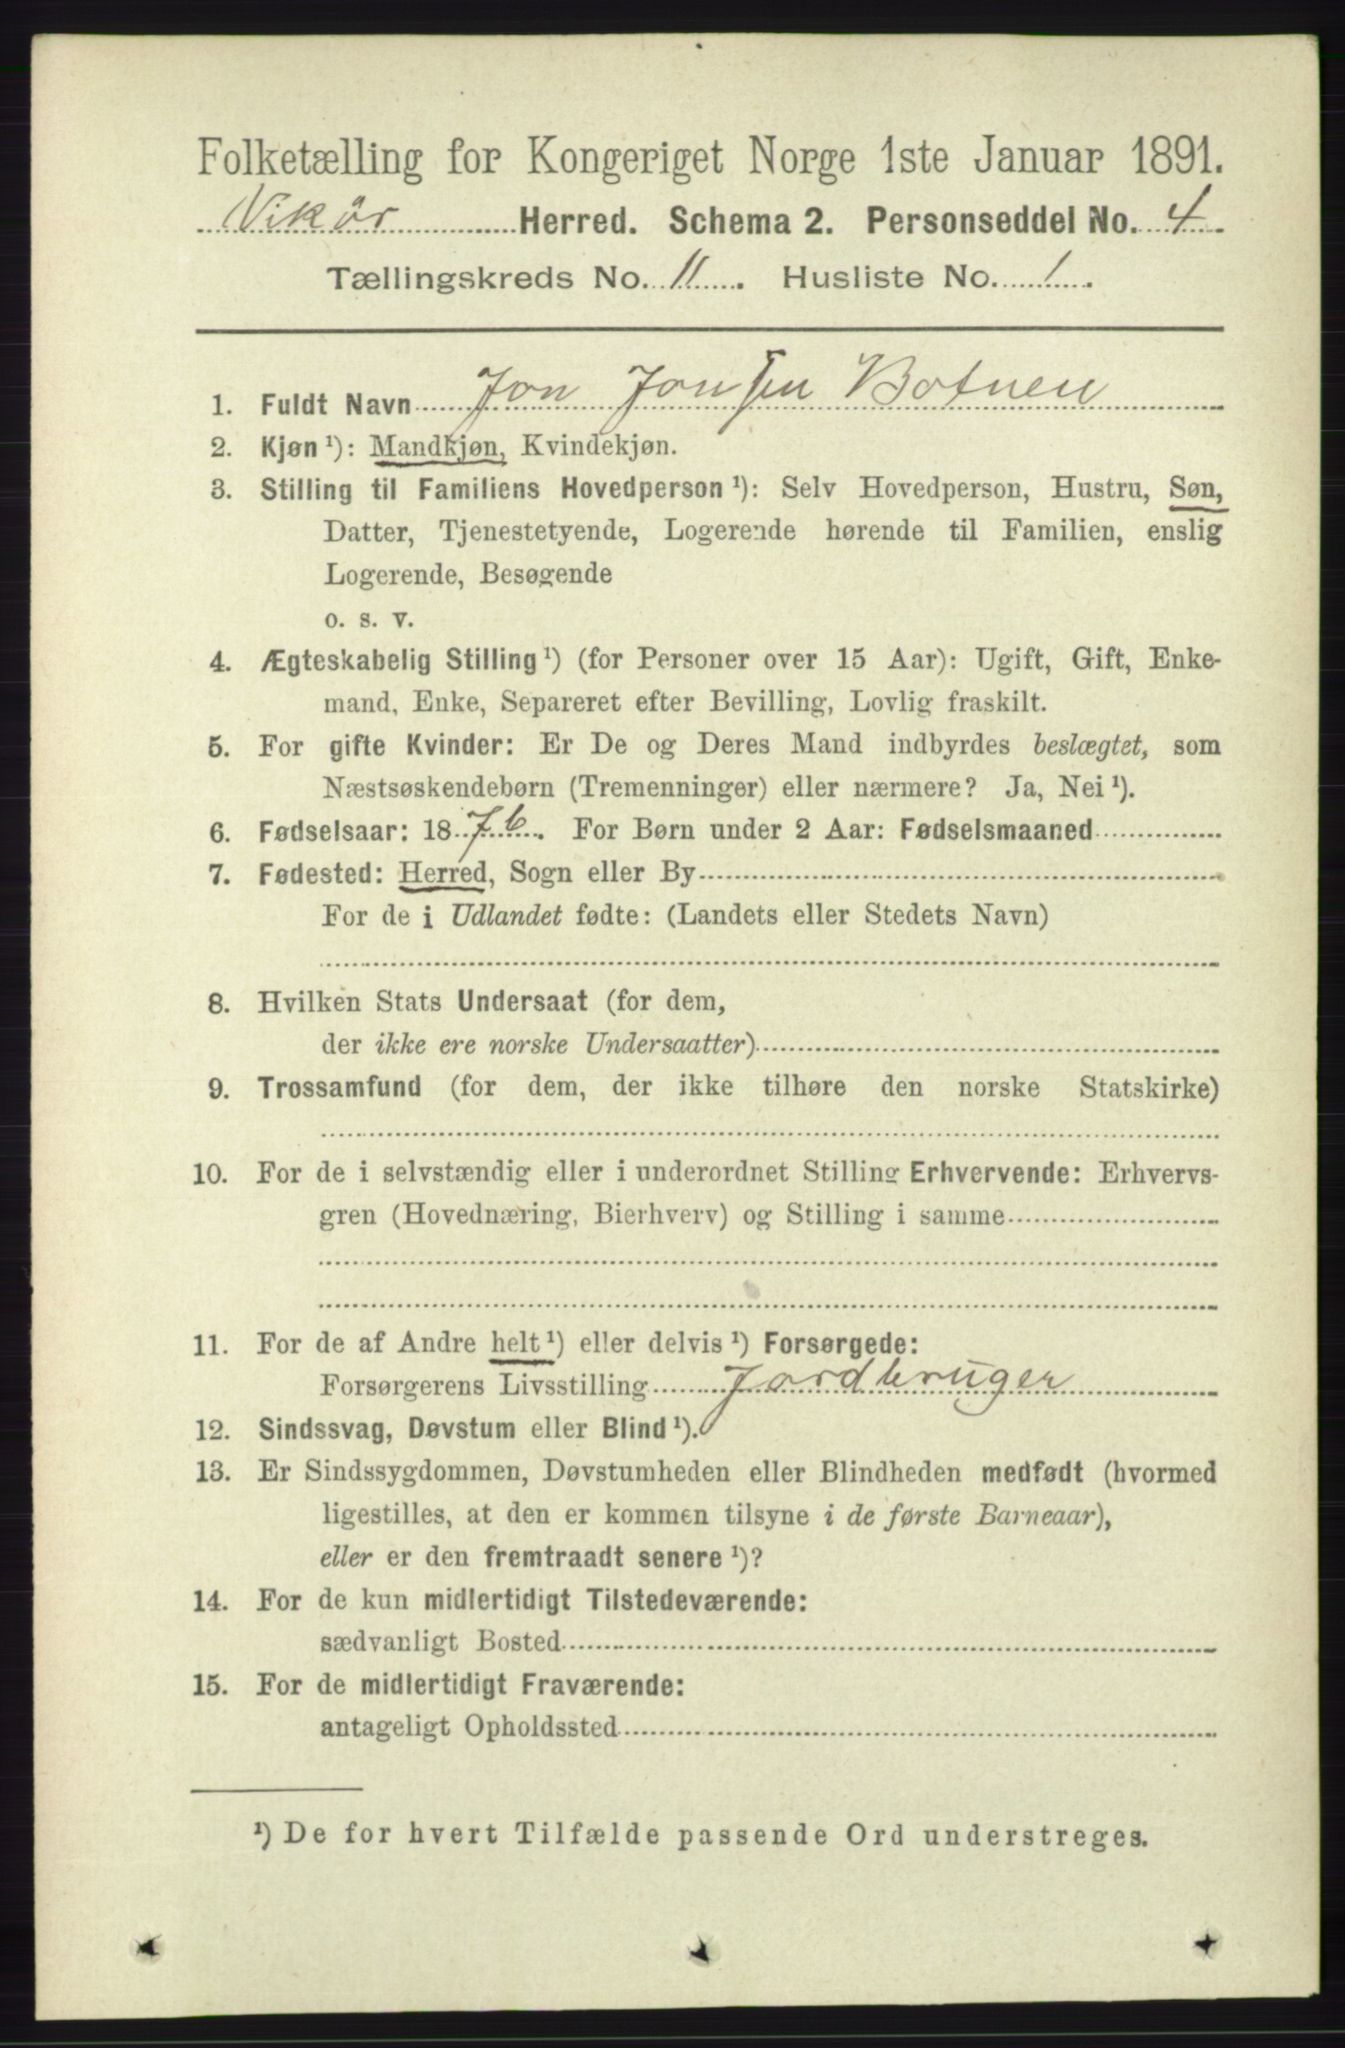 Folketælling for Kongeriget Norge 1ste Januar 1891.
Vikör Herred. Schema 2. Personseddel No. 4
Tællingskreds No. 11. Husliste No. 1.
1. Fuldt Navn Jon Jonsen Botnen
2. Kjøn ¹): Mandkjøn, Kvindekjøn.
3. Stilling til Familiens Hovedperson ¹): Selv Hovedperson, Hustru, Søn,
Datter, Tjenestetyende, Logerende hørende til Familien, enslig
Logerende, Besøgende
o. s. v.
4. Ægteskabelig Stilling ¹) (for Personer over 15 Aar): Ugift, Gift, Enke-
mand, Enke, Separeret efter Bevilling, Lovlig fraskilt.
5. For gifte Kvinder: Er De og Deres Mand indbyrdes beslægtet, som
Næstsøskendebørn (Tremenninger) eller nærmere? Ja, Nei ¹).
6. Fødselsaar: 1876. For Børn under 2 Aar: Fødselsmaaned
7. Fødested: Herred, Sogn eller By
For de i Udlandet fødte: (Landets eller Stedets Navn)
8. Hvilken Stats Undersaat (for dem,
der ikke ere norske Undersaatter)
9. Trossamfund (for dem, der ikke tilhøre den norske Statskirke)
10. For de i selvstændig eller i underordnet Stilling Erhvervende: Erhvervs-
gren (Hovednæring, Bierhverv) og Stilling i samme
11. For de af Andre helt ¹) eller delvis ¹) Forsørgede:
Forsørgerens Livsstilling Jordbruger
12. Sindssvag, Døvstum eller Blind ¹).
13. Er Sindssygdommen, Døvstumheden eller Blindheden medfødt (hvormed
ligestilles, at den er kommen tilsyne i de første Barneaar),
eller er den fremtraadt senere ¹)?
14. For de kun midlertidigt Tilstedeværende:
sædvanligt Bosted
15. For de midlertidigt Fraværende:
antageligt Opholdssted
¹) De for hvert Tilfælde passende Ord understreges.